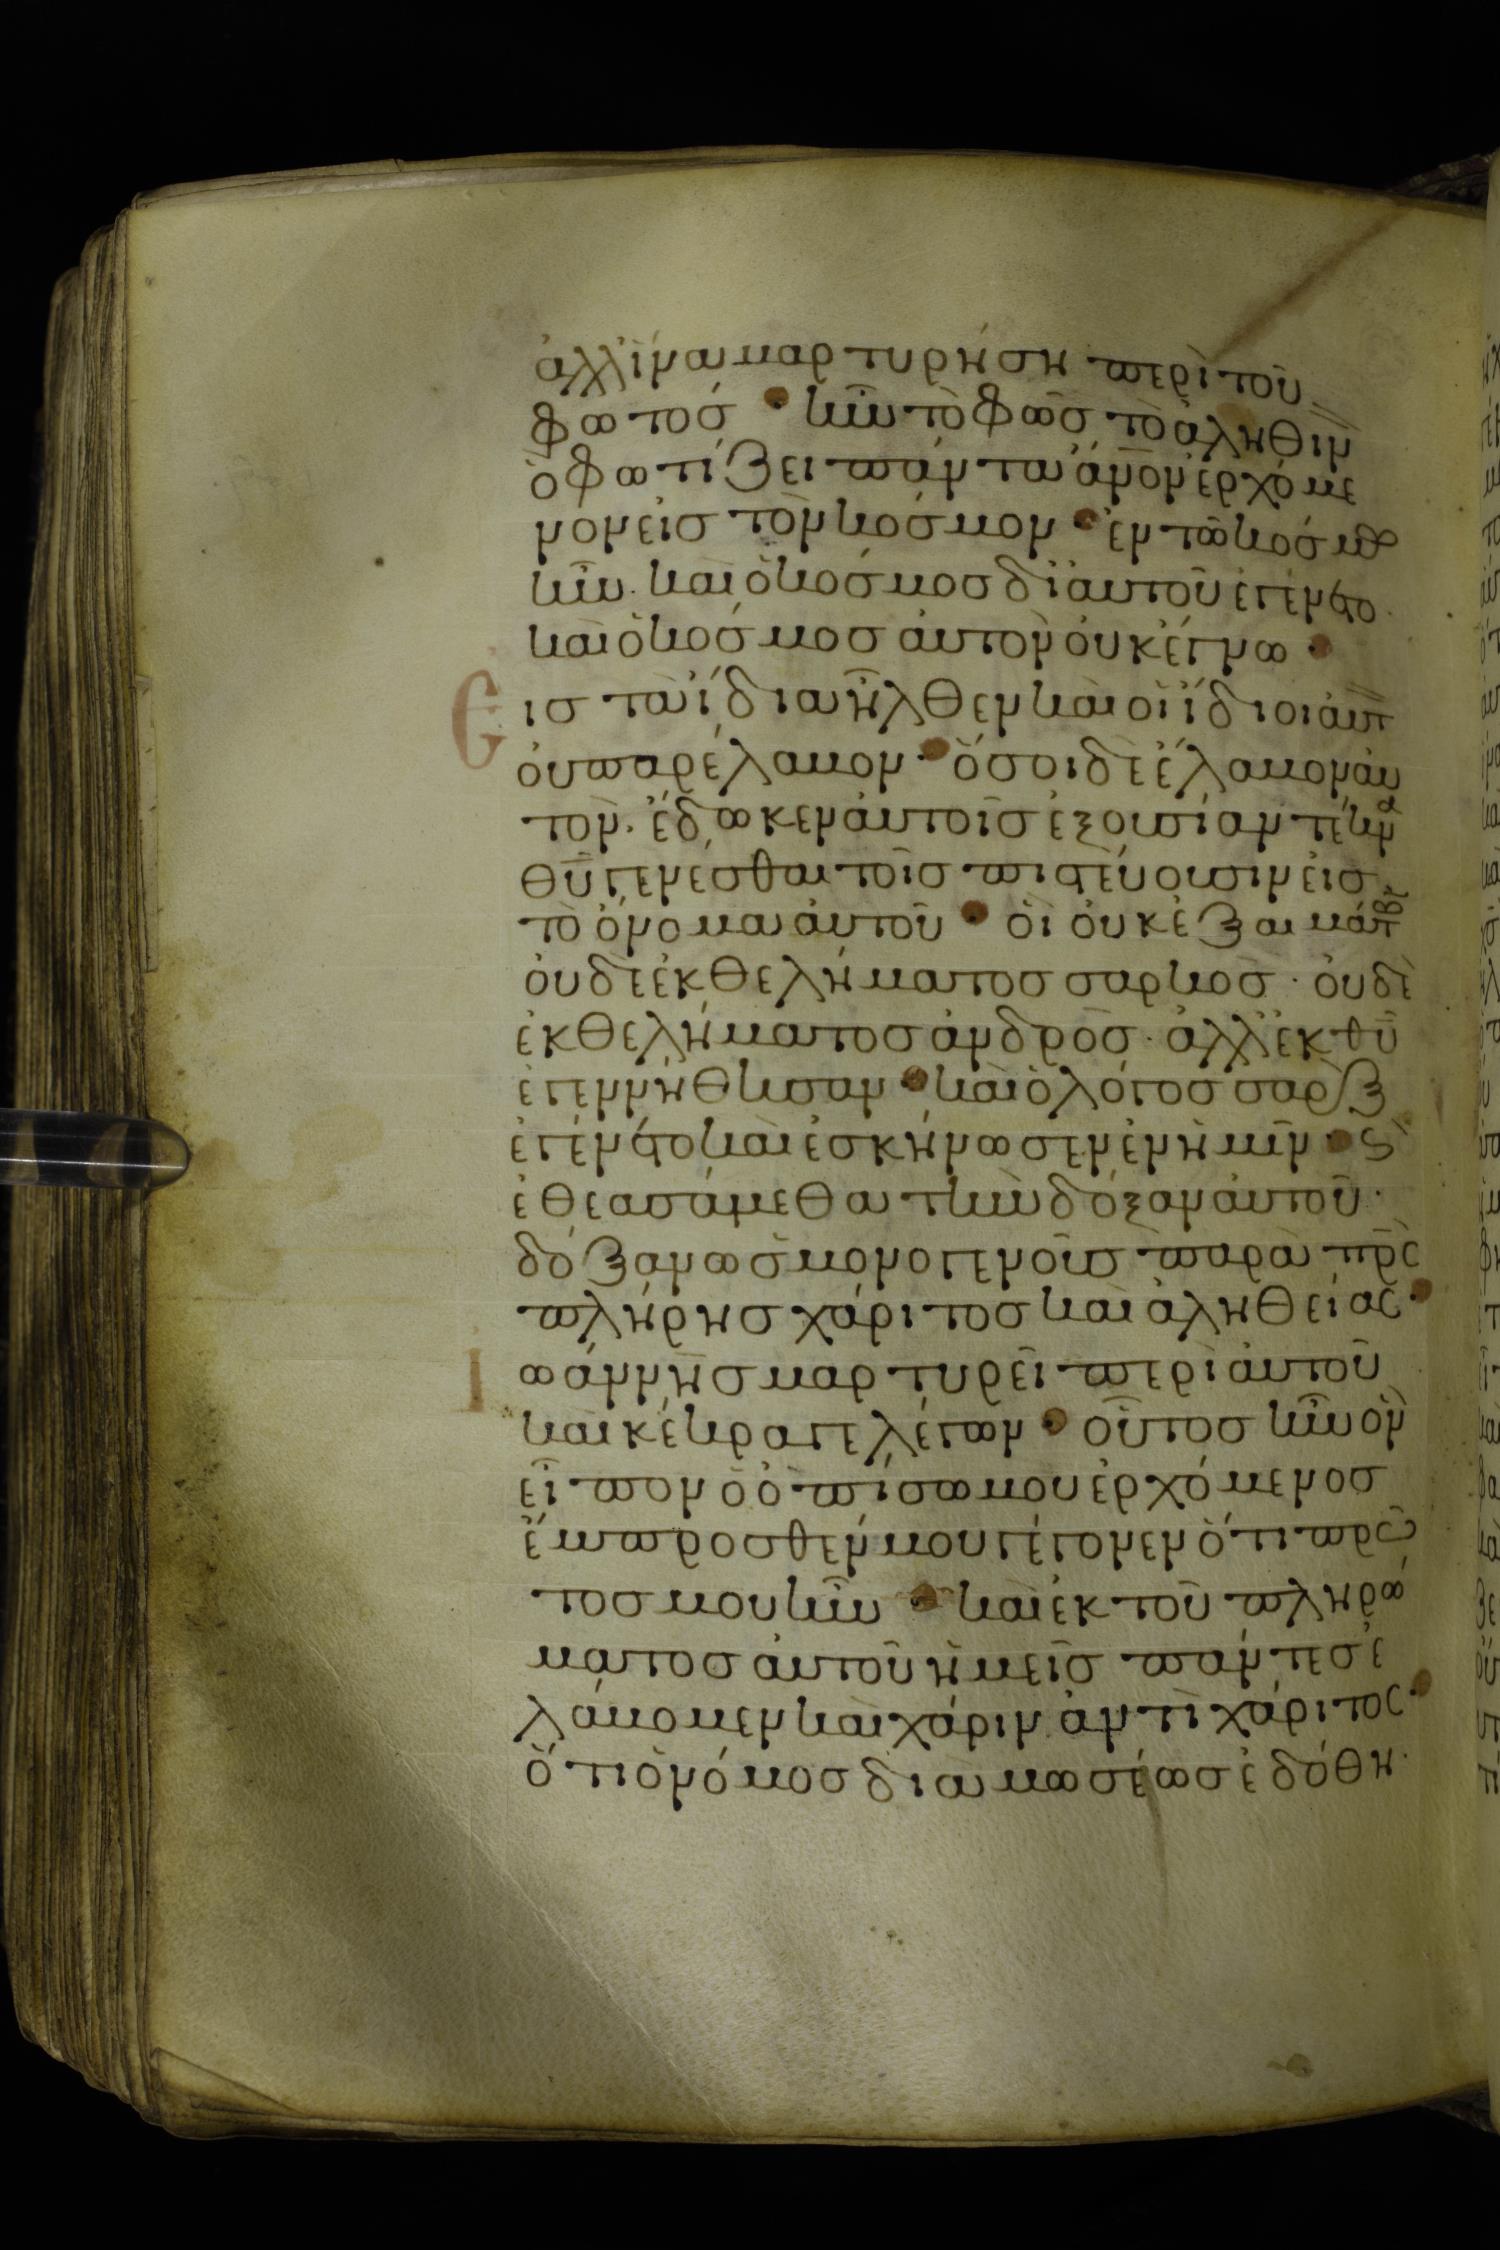 ἀλλ' ἵνα μαρτυρήση περὶ τοῦ
φωτός · ἦν τὸ φῶς τὸ ἀληθιν
ὁ φωτίζει πάντα ἄνον ἐρχόμε
νον εἰς τὸν κόσμον · ἐν τῶ κόσμω
ἦν · καὶ ὁ κόσμος δι' αυτοῦ ἐγένετο ·
καὶ ὁ κόσμος ἀυτὸν ὀυκ ἔγνω ·
Εις τὰ ἴδια ἦλθεν καὶ οἱ ἴδιοι ἀυτ
ὀυ παρέλαβον · ὅσοι δὲ ἔλαβον ἀυ
τὸν · ἔδωκεν ἀυτοῖς ἐξουσίαν τέκνα
θῦ γενέσθαι τοῖς πιστέυουσιν εἰς
τὸ ὄνομα ἀυτοῦ · ὁι ὀυκ ἐξ αἱμάτων
ὀυδὲ ἐκ θελήματος σαρκὸς · ὀυδὲ
ἐκ θελήματος ἀνδρὸς · ἀλλ' ἐκ θῦ
ἐγεννήθησαν · καὶ ὁ λόγος σὰρξ
ἐγένετο καὶ ἐσκήνωσεν ἐν ἡμῖν · ϗ
ἐθεασάμεθα τὴν δόξαν ἀυτοῦ ·
δόξαν ὡς μονογενοῦς παρὰ πρς
πλήρης χάριτος καὶ ἀληθείας ·
Ιωάννης μαρτυρεῖ περὶ ἀυτοῦ
καὶ κέκραγε λέγων · οὗτος ἦν ὃν
εἶπον ὁ ὀπίσω μου ἐρχόμενος
ἔμπροσθέν μου γέγονεν ὅτι πρῶ
τος μου ἦν · καὶ ἐκ τοῦ πληρώ
ματος ἀυτοῦ ἡμεῖς πάντες ἐ
λάβομεν καὶ χάριν ἀντὶ χάριτος ·
ὅτι ὁ νόμος δια μωσέως ἐδόθη ·